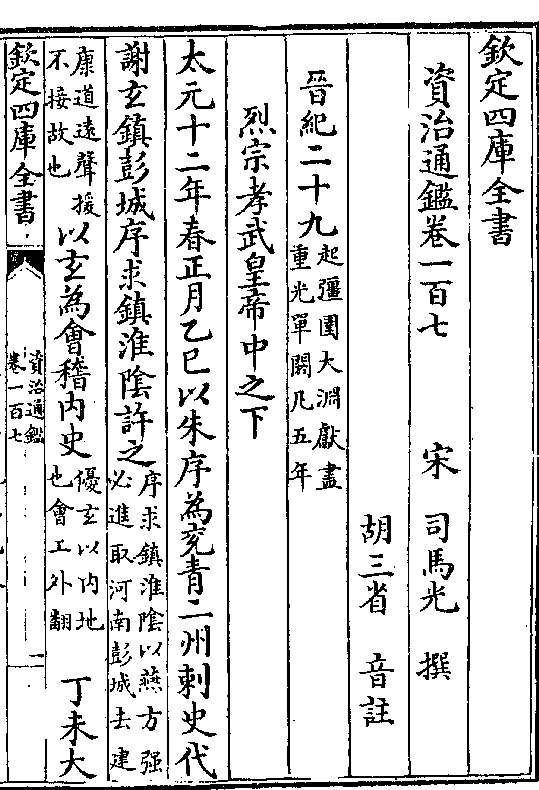 欽定四庫全書
資治通鑑卷一百七
宋 司馬光 撰
胡三省 音註
晉紀二十九起彊圉大淵獻盡重光單閼凡五年
烈宗孝武皇帝中之下
太元十二年春正月乙巳以朱序為兖青二州刺史代
謝玄鎮彭城序求鎮淮隂許之序求鎮淮隂以燕方强必進取河南彭城去建
康道遠聲援不接故也以玄為會稽内史優玄以内地也會工外翻丁未大
欽定四庫全書
資治通鑑
卷一百七
一